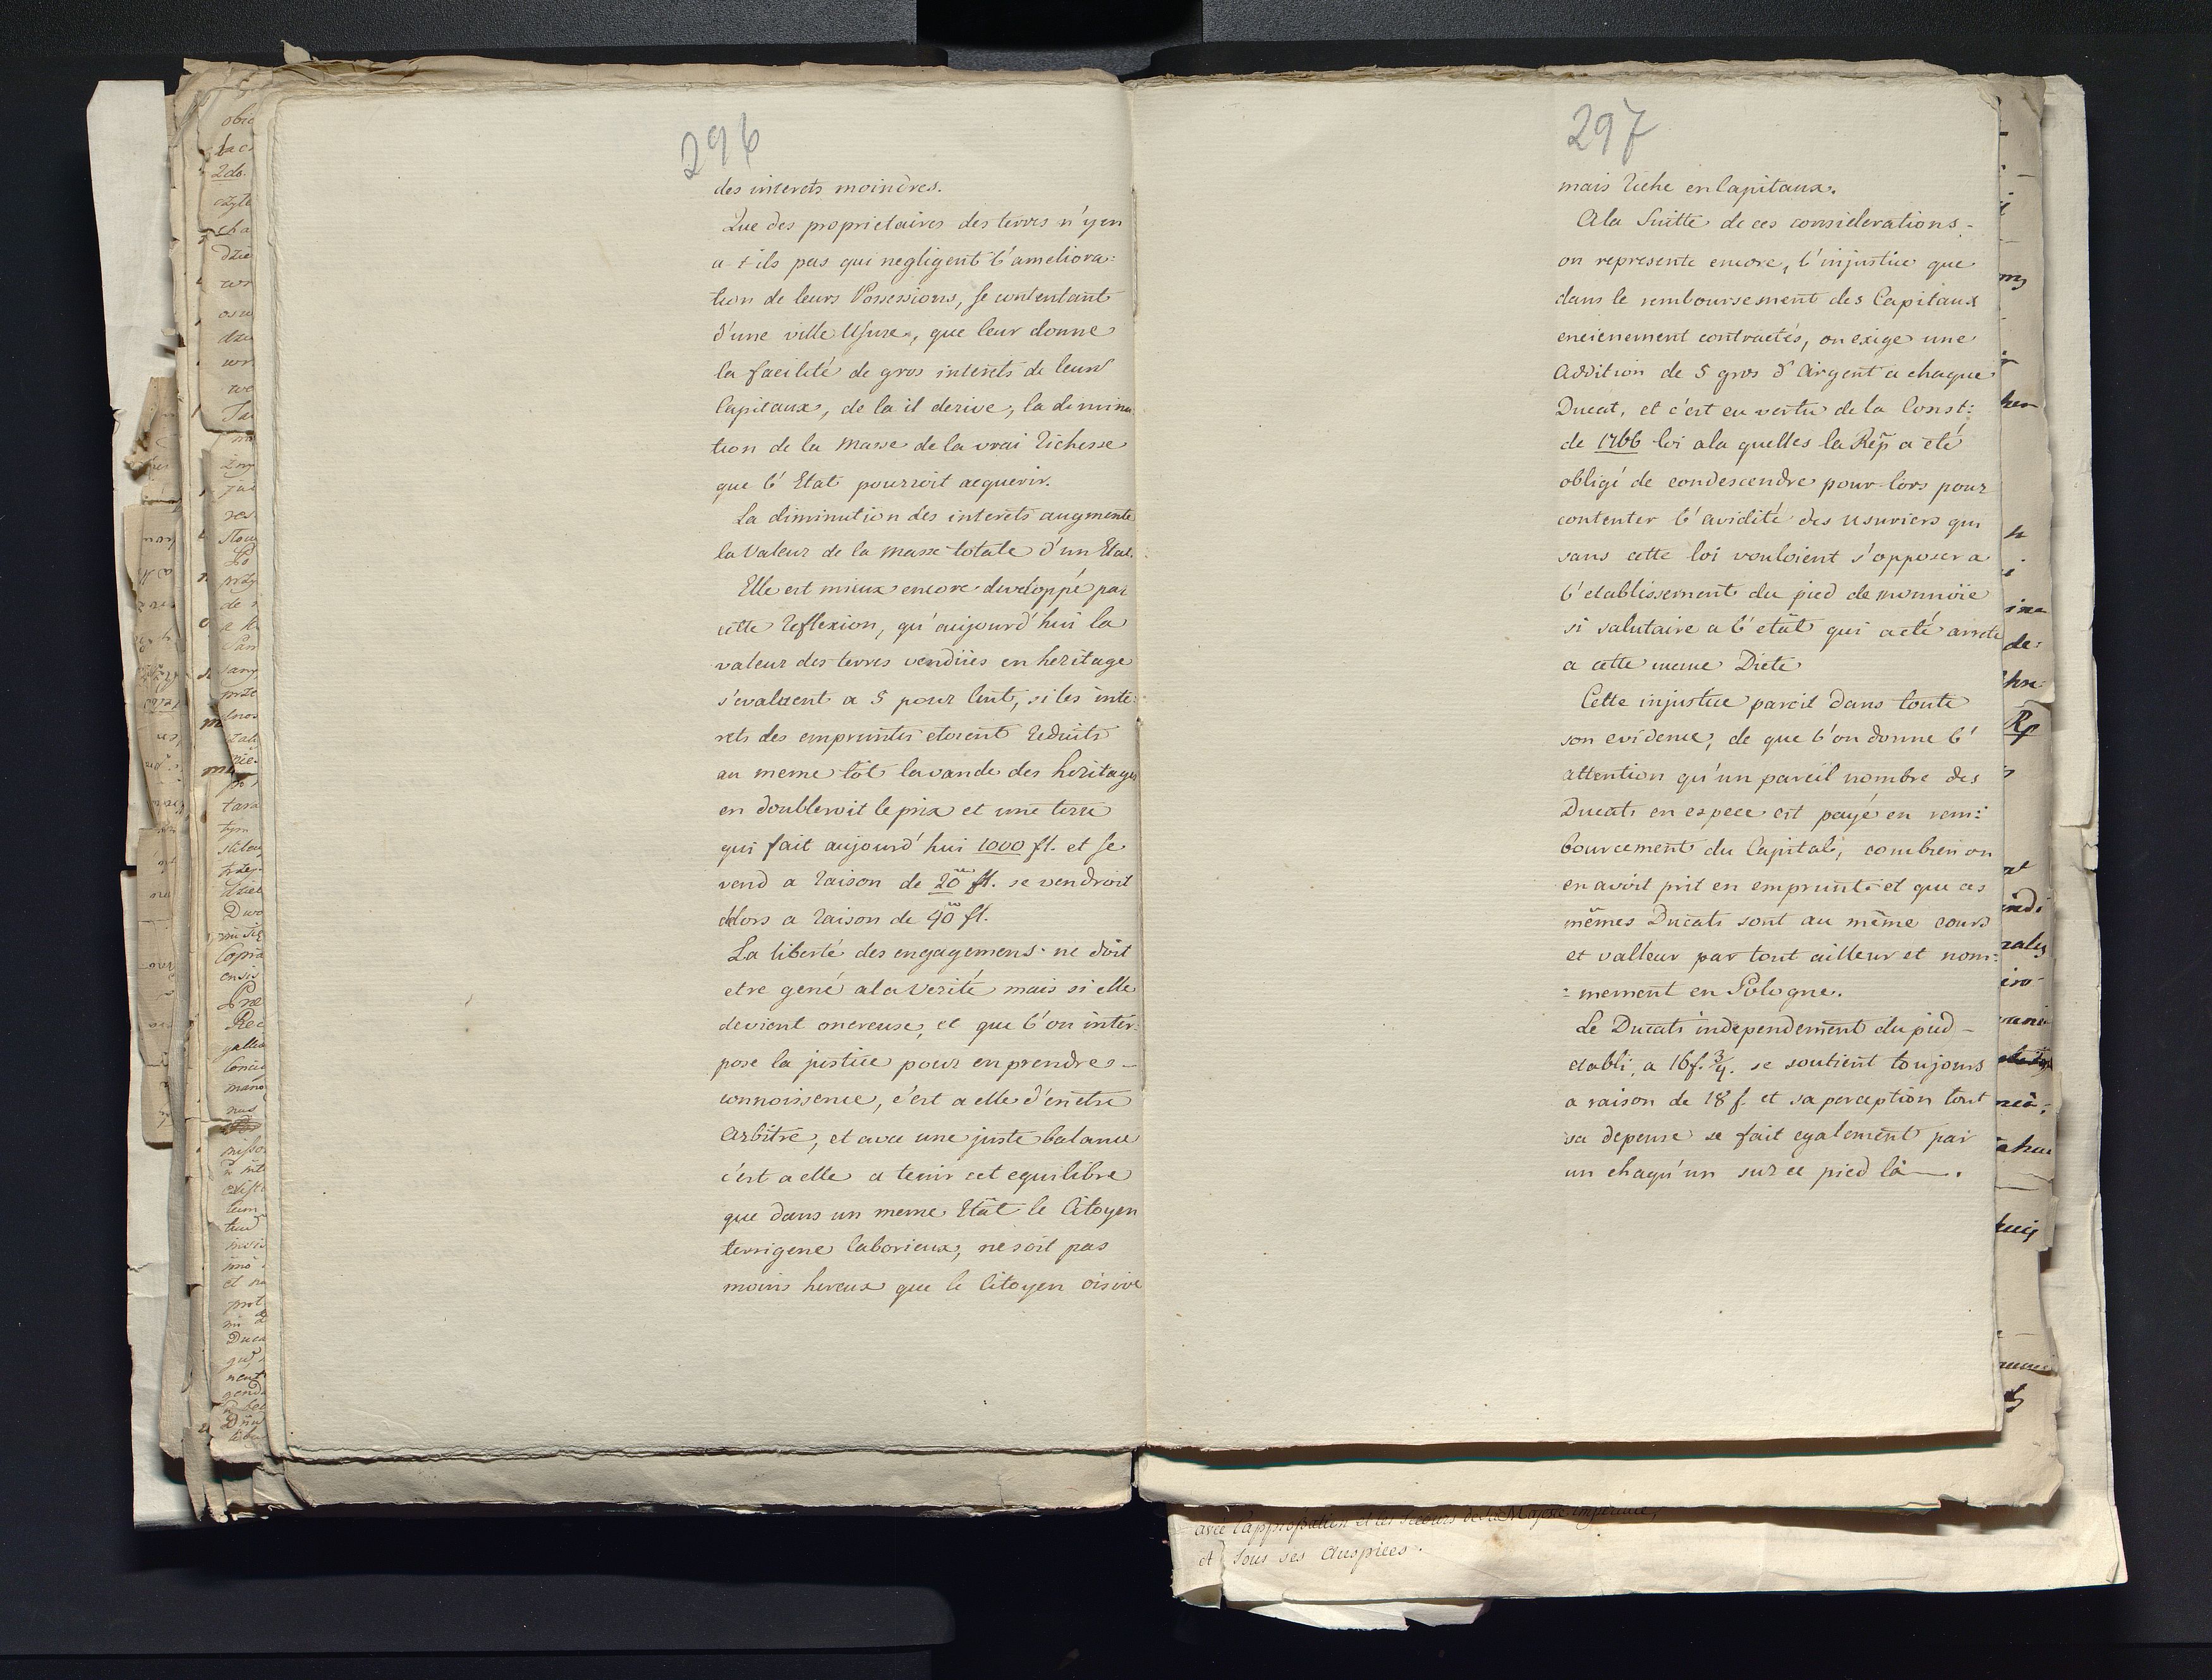 296
des interets moindres.
Que des proprietaires des terres n'y en
a-t-ils pas qui negligent l'ameliora:
tion de leurs Possessions, se contentant
d'une ville Usure, que leur donne
la facilité de gros interets de leurs
Capitaux, de la il derive, la diminu
tion de la Masse de la vrai Richesse
que l'Etat pourroit acquerir.
La diminution des interets augmente
la Valeur de la masse totale d'un Etat.
Elle est mieux encore developpé par
cette Reflexion, qu'aujourd'hui la
valeur des terres vendües en heritage
s'evaluent a 5 pour Cent, si les inte:
rets des emprunts etoient Reduits
au meme tôt la vande des heritages
en doubleroit le prix et une terre
qui fait aujourd'hui 1000 fl. et se
vend a Raison de 20 fl. se vendroit
alors a Raison de 40 fl.
La liberté des engagemens ne doit
etre gené a la Verité mais si elle
devient onereuse, et que l'on inter:
pose la justice pour en prendres -
connoissence, c'est a elle d'en etre
Arbitre, et avec une juste balance
c'est a elle a tenir cet equilibre
que dans un meme Etat le Citoyen
terrigene laborieux, ne soit pas
moins hereux que le Citoyen oisive
297
mais Riche en Capitaux.
A la Suitte de ces considerations -
on represente encore, l'injustice que
dans le remboursement des Capitaux
encienement contractés, on exige une
Addition de 5 gros d'Argent a chaque
Ducat, et c'est en vertu de la Const:
de 1766 loi a la quelles la Rep̃ a été
obligé de condescendre pour-lors pour
contenter l'avidité des usuriers qui
sans cette loi vouloient s'opposer a
l'etablissement du pied de monnoie
si salutaire a l'etat qui a eté arreté
a cette meme Diete
Cette injustice paroit dans toute
son evidence, de que l'on donne l'
attention qu'un pareil nombre des
Ducats en espece est payé en rem:
bourcement du Capital, combien on
en avoit prit en emprunt et que ces
mêmes Ducats sont au même cours
et valleur par tout ailleur et nom:
:mement en Pologne.
Le Ducats independement du pied -
etabli, a 16 f. 3/4. se soutient toujours
a raison de 18 f. et sa perception tout
sa depense se fait egalement par
un chaqu'un sur ce pied là —.
avec l'approbation et les secours de Sa Majesté imperiale,
et sous ses Auspices.